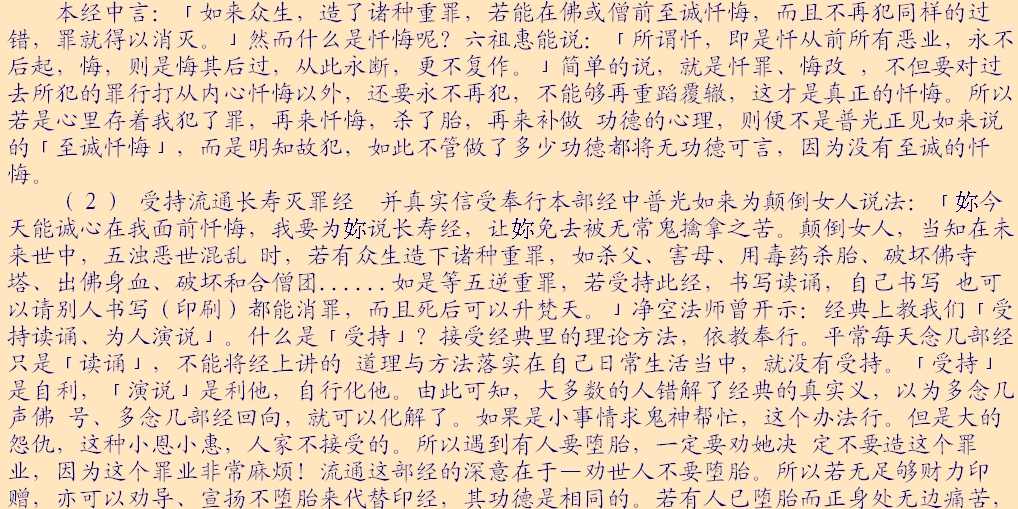 本经中言：「如来众生，造了诸种重罪，若能在佛或僧前至诚忏悔，而且不再犯同样的过
错，罪就得以消灭。」然而什么是忏悔呢？六祖惠能说：「所谓忏，即是忏从前所有恶业，永不
后起，悔，则是悔其后过，从此永断，更不复作。」简单的说，就是忏罪、悔改 ，不但要对过
去所犯的罪行打从内心忏悔以外，还要永不再犯，不能够再重蹈覆辙，这才是真正的忏悔。所以
若是心里存着我犯了罪，再来忏悔，杀了胎，再来补做 功德的心理，则便不是普光正见如来说
的「至诚忏悔」，而是明知故犯，如此不管做了多少功德都将无功德可言，因为没有至诚的忏
悔。
（２） 受持流通长寿灭罪经　并真实信受奉行本部经中普光如来为颠倒女人说法：「妳今
天能诚心在我面前忏悔，我要为妳说长寿经，让妳免去被无常鬼擒拿之苦。颠倒女人，当知在未
来世中，五浊恶世混乱 时，若有众生造下诸种重罪，如杀父、害母、用毒药杀胎、破坏佛寺
塔、出佛身血、破坏和合僧团......如是等五逆重罪，若受持此经，书写读诵，自己书写 也可
以请别人书写（印刷）都能消罪，而且死后可以升梵天。」净空法师曾开示：经典上教我们「受
持读诵、为人演说」。什么是「受持」？接受经典里的理论方法，依教奉行。平常每天念几部经
只是「读诵」，不能将经上讲的 道理与方法落实在自己日常生活当中，就没有受持。「受持」
是自利，「演说」是利他，自行化他。由此可知，大多数的人错解了经典的真实义，以为多念几
声佛 号、多念几部经回向，就可以化解了。如果是小事情求鬼神帮忙，这个办法行。但是大的
怨仇，这种小恩小惠，人家不接受的。所以遇到有人要堕胎，一定要劝她决 定不要造这个罪
业，因为这个罪业非常麻烦！流通这部经的深意在于—劝世人不要堕胎。所以若无足够财力印
赠，亦可以劝导、宣扬不堕胎来代替印经，其功德是相同的。若有人已堕胎而正身处无边痛苦，